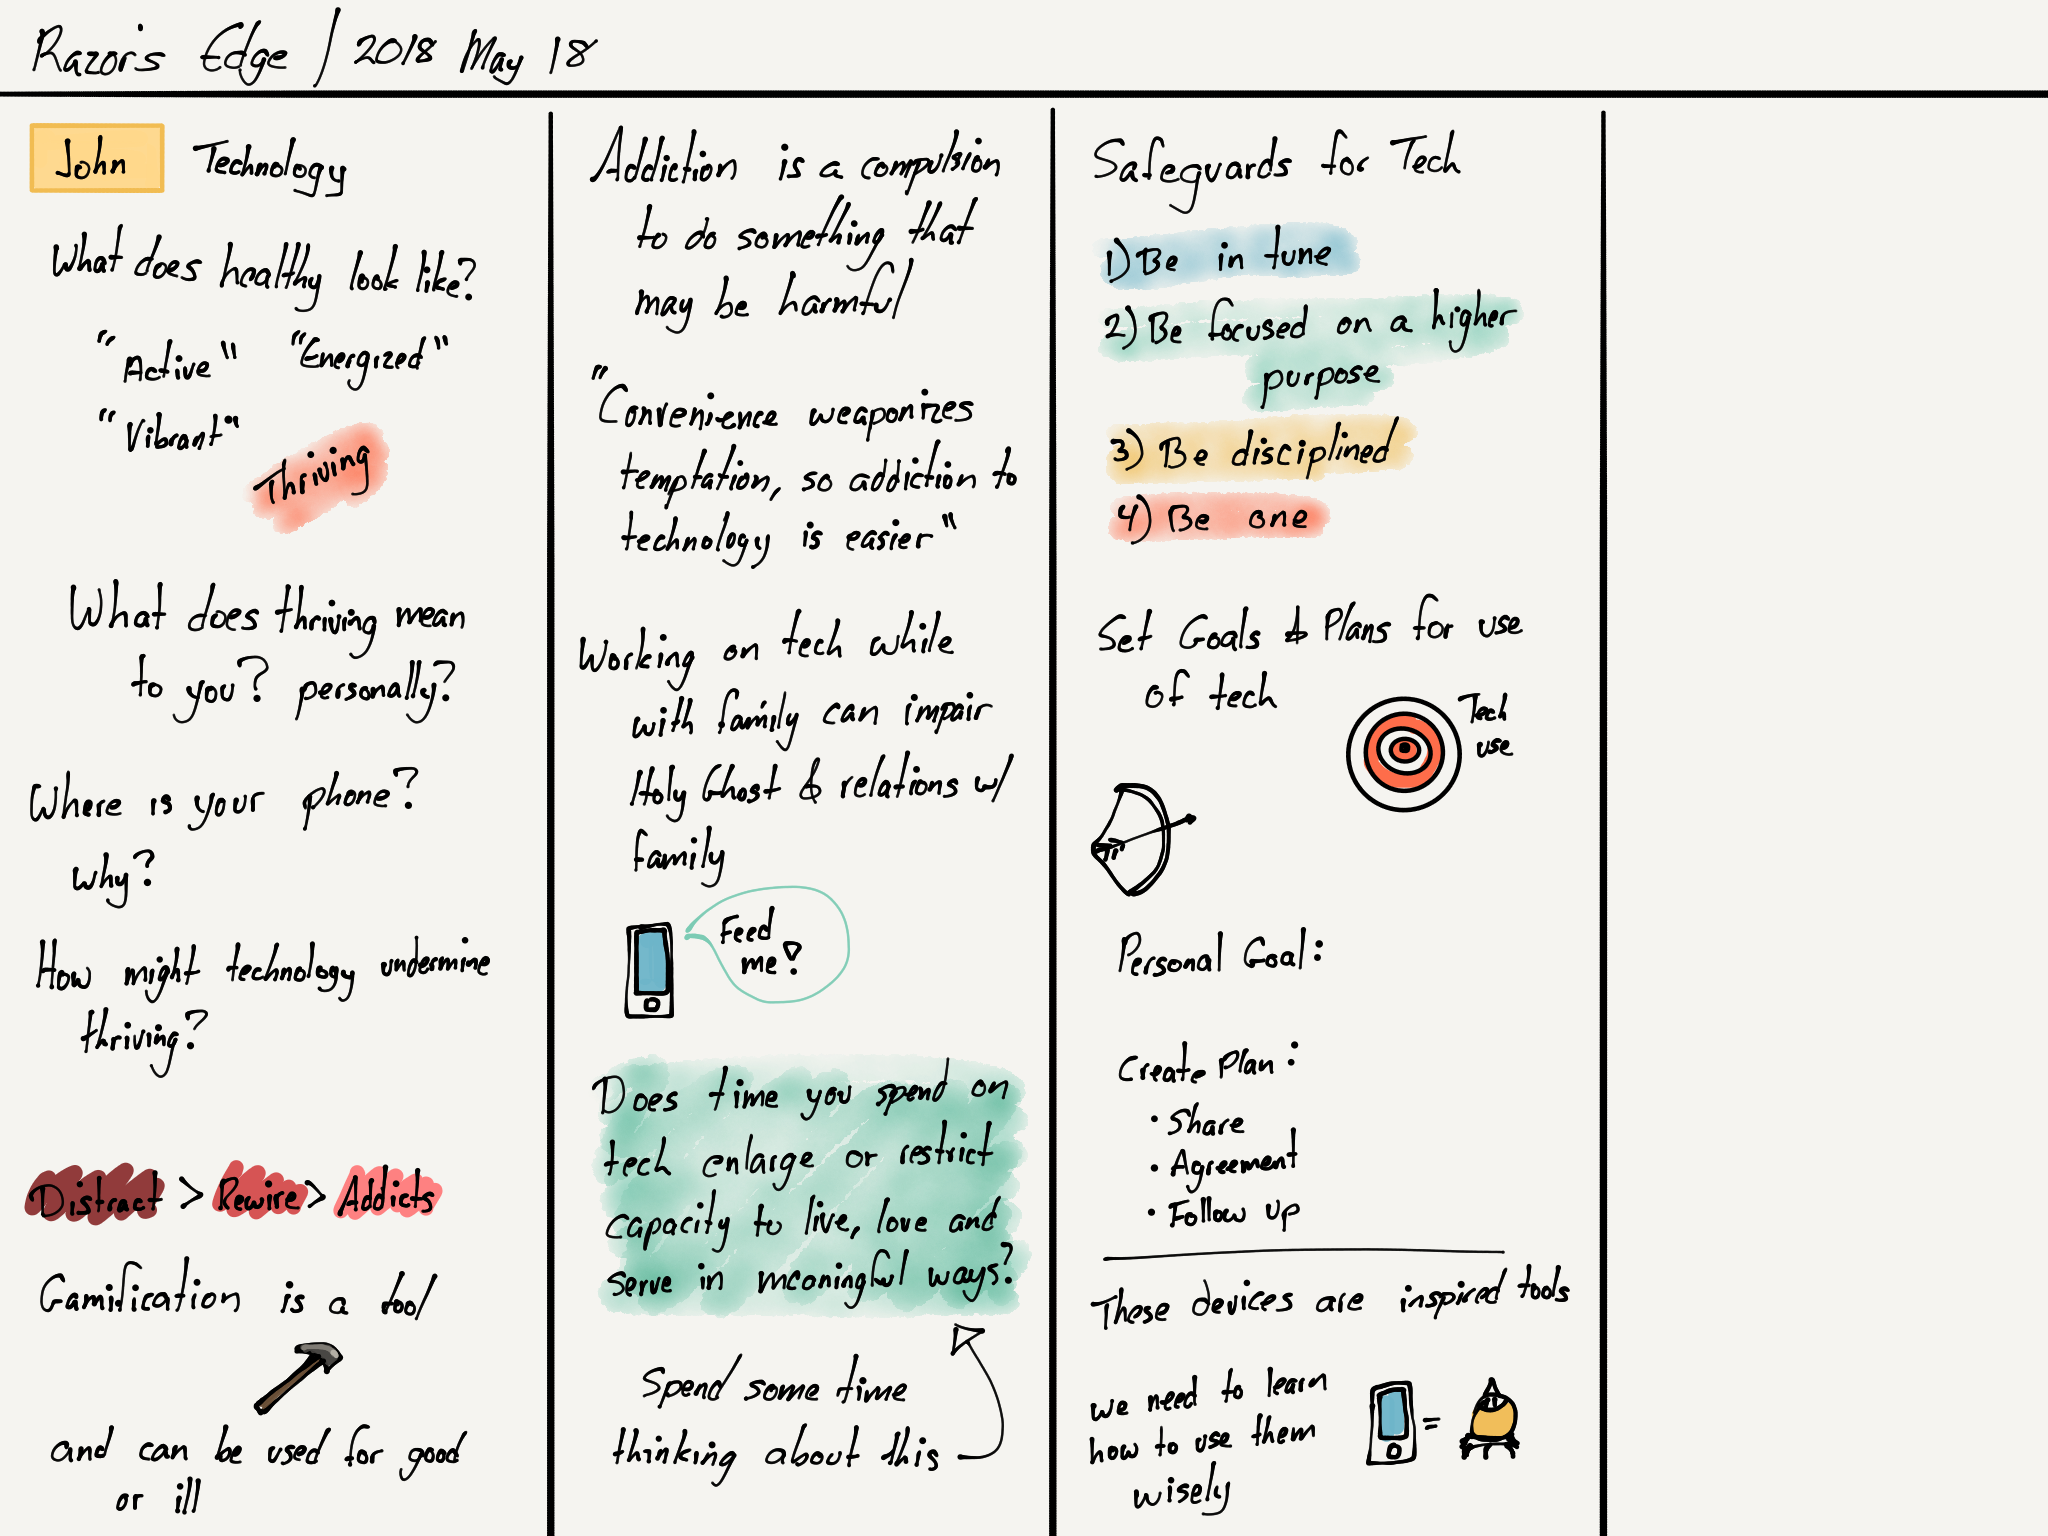 Razor's Edge / 2018 May 18
John Technology
What does healthy look like?
"Active" "Energized"
"Vibrant"
Thriving
What does thriving mean
to you? personally?
Where is your phone?
why?
How might technology undermine
thriving?
Distract > Rewire > Addicts
Gamification is a tool
and can be used for good
or ill
Addiction is a compulsion
to do something that
may be harmful
"Convenience weaponizes
temptation, so addiction to
technology is easier"
Working on tech while
with family can impair
Holy Ghost & relations w/
family
Feed
me!
Does time you spend on
tech enlarge or restrict
capacity to live, love and
serve in meaningful ways?
Spend some time
thinking about this
Safeguards for Tech
1) Be in tune
2) Be focused on a higher
purpose
3) Be disciplined
4) Be one
Set Goals & Plans for use
of tech
Tech
use
Personal Goal:
Create Plan:
• Share
• Agreement
• Follow up
These devices are inspired tools
we need to learn
how to use them
wisely
=